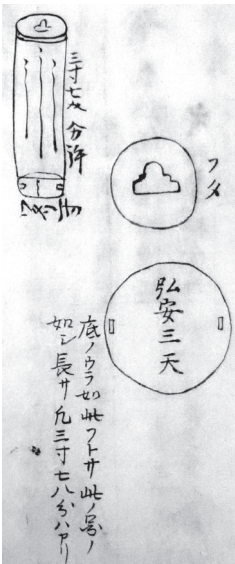 三寸七八分許
フタ
弘安三天
底ノウラ如此フトサ此ノ㝍ノ
如シ長サ凡三寸七八分ハカリ